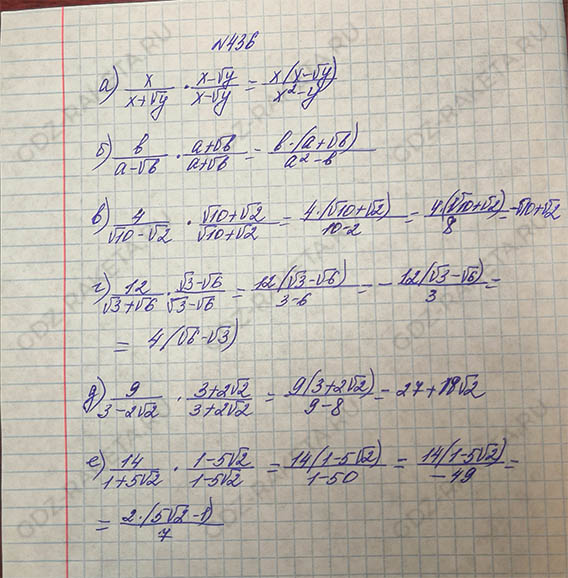 №436
а) x/(x+√y) · (x-√y)/(x-√y) = x(x-√y)/(x²-y)
б) b/(a-√b) · (a+√b)/(a+√b) = b·(a+√b)/(a²-b)
в) 4/(√10-√2) · (√10+√2)/(√10+√2) = 4·(√10+√2)/(10-2) = 4(√10+√2)/8 = √10+√2
г) 12/(√3+√6) · (√3-√6)/(√3-√6) = 12(√3-√6)/(3-6) = - 12(√3-√6)/3 =
= 4(√6-√3)
д) 9/(3-2√2) · (3+2√2)/(3+2√2) = 9(3+2√2)/(9-8) = 27+18√2
е) 14/(1+5√2) · (1-5√2)/(1-5√2) = 14(1-5√2)/(1-50) = 14(1-5√2)/(-49) =
= 2·(5√2-1)/7
GDZ-RAKETA.RU